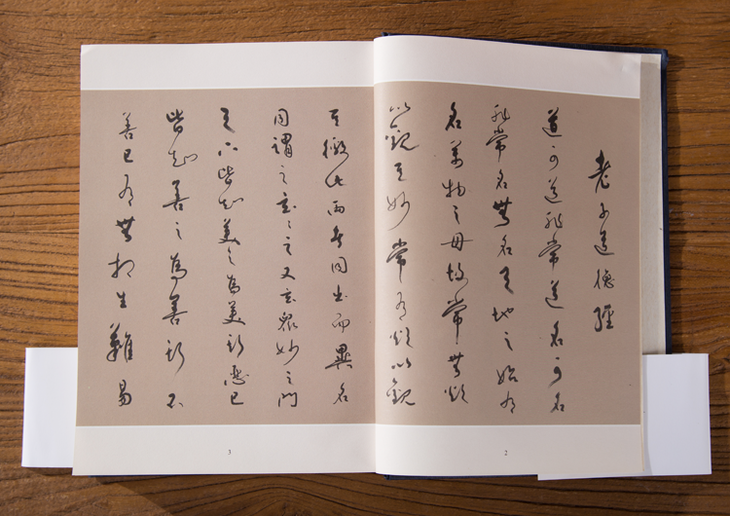 老子道德經
道可道非常道名可名
非常名無名天地之始有
名萬物之母故常無欲
以觀其妙常有欲以觀
2
其徼此兩者同出而異名
同謂之玄玄之又玄眾妙之門
天下皆知美之為美斯惡已
皆知善之為善斯不
善已有無相生難易
3